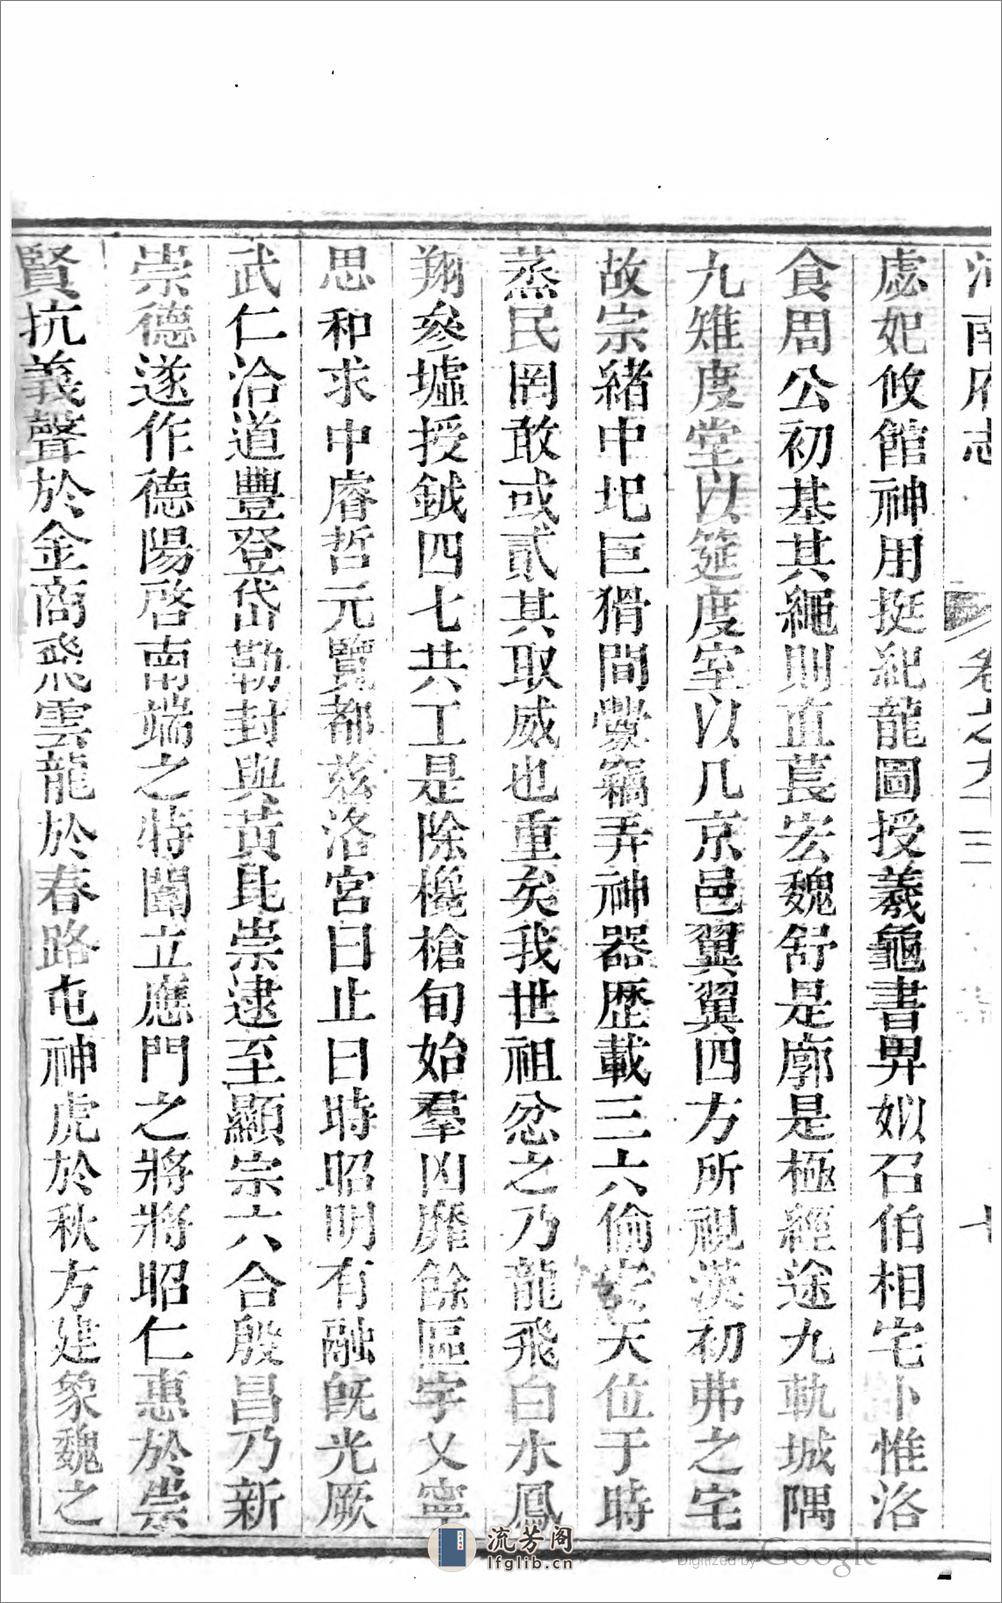 河南府志 卷之九
虙妃攸館神用挺紀龍圖授羲龜書畀姒召伯相宅卜惟洛
食周公初基其繩則直萇宏魏舒是廓是極經途九軌城隅
九雉度堂以筵度室以几京邑翼翼四方所視漢初弗之宅
故宗緒中圯巨猾間舋竊弄神器歷載三六偷安天位于時
蒸民罔敢或貳其取威也重矣我世祖忿之乃龍飛白水鳳
翔參墟授鉞四七共工是除欃槍旬始羣凶靡餘區宇乂寧
思和求中睿哲元覽都茲洛宮曰止曰時昭明有融旣光厥
武仁洽道豐登岱勒封與黃比崇逮至顯宗六合殷昌乃新
崇德遂作德陽啓南端之特闈立應門之將將昭仁惠於崇
賢抗義聲於金商飛雲龍於春路屯神虎於秋方建象魏之
流芳阁
lfglib.cn
Digitized by Google